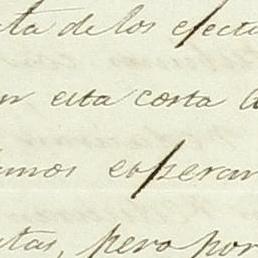 ta de los efectu
n esta costa d
amos esperan
tas, pero por